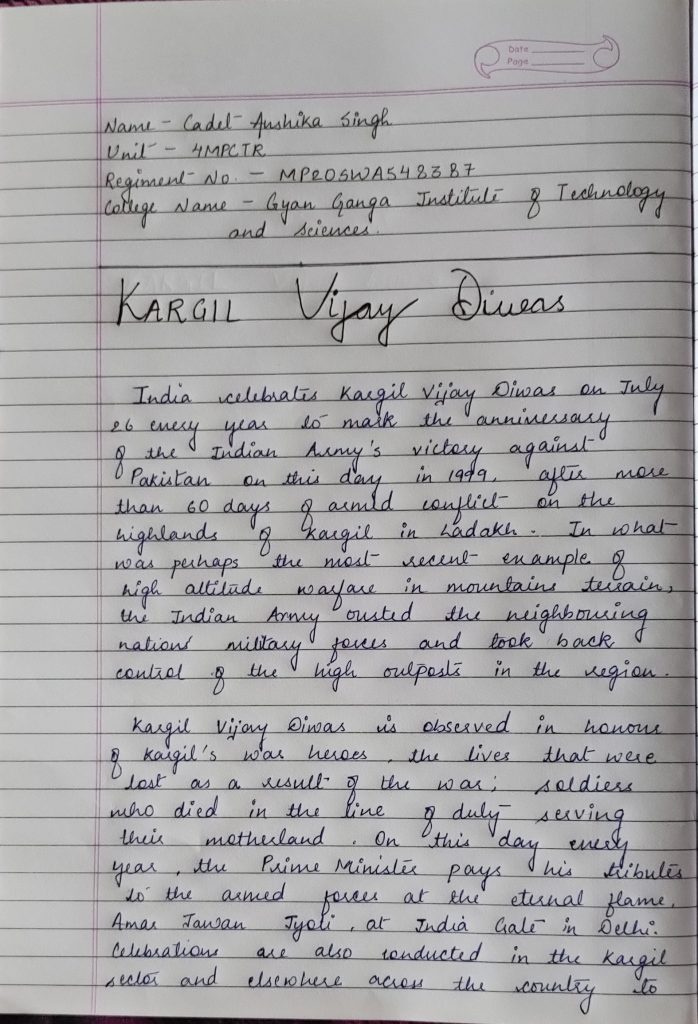 Date
Page
Name - Cadet Anshika Singh
Unit - 4MPCTR
Regiment No. - MP20SWA548387
College Name - Gyan Ganga Institute of Technology
and Sciences.
KARGIL Vijay Diwas
India celebrates Kargil Vijay Diwas on July
26 every year to mark the anniversary
of the Indian Army's victory against
Pakistan on this day in 1999, after more
than 60 days of armed conflict on the
highlands of Kargil in Ladakh. In what
was perhaps the most recent example of
high altitude warfare in mountains terrain,
the Indian Army ousted the neighbouring
nations' military forces and took back
control of the high outposts in the region.
Kargil Vijay Diwas is observed in honour
of Kargil's war heroes, the lives that were
lost as a result of the war; soldiers
who died in the line of duty serving
their motherland. On this day every
year, the Prime Minister pays his tributes
to the armed forces at the eternal flame,
Amar Jawan Jyoti, at India Gate in Delhi.
Celebrations are also conducted in the Kargil
sector and elsewhere across the country to